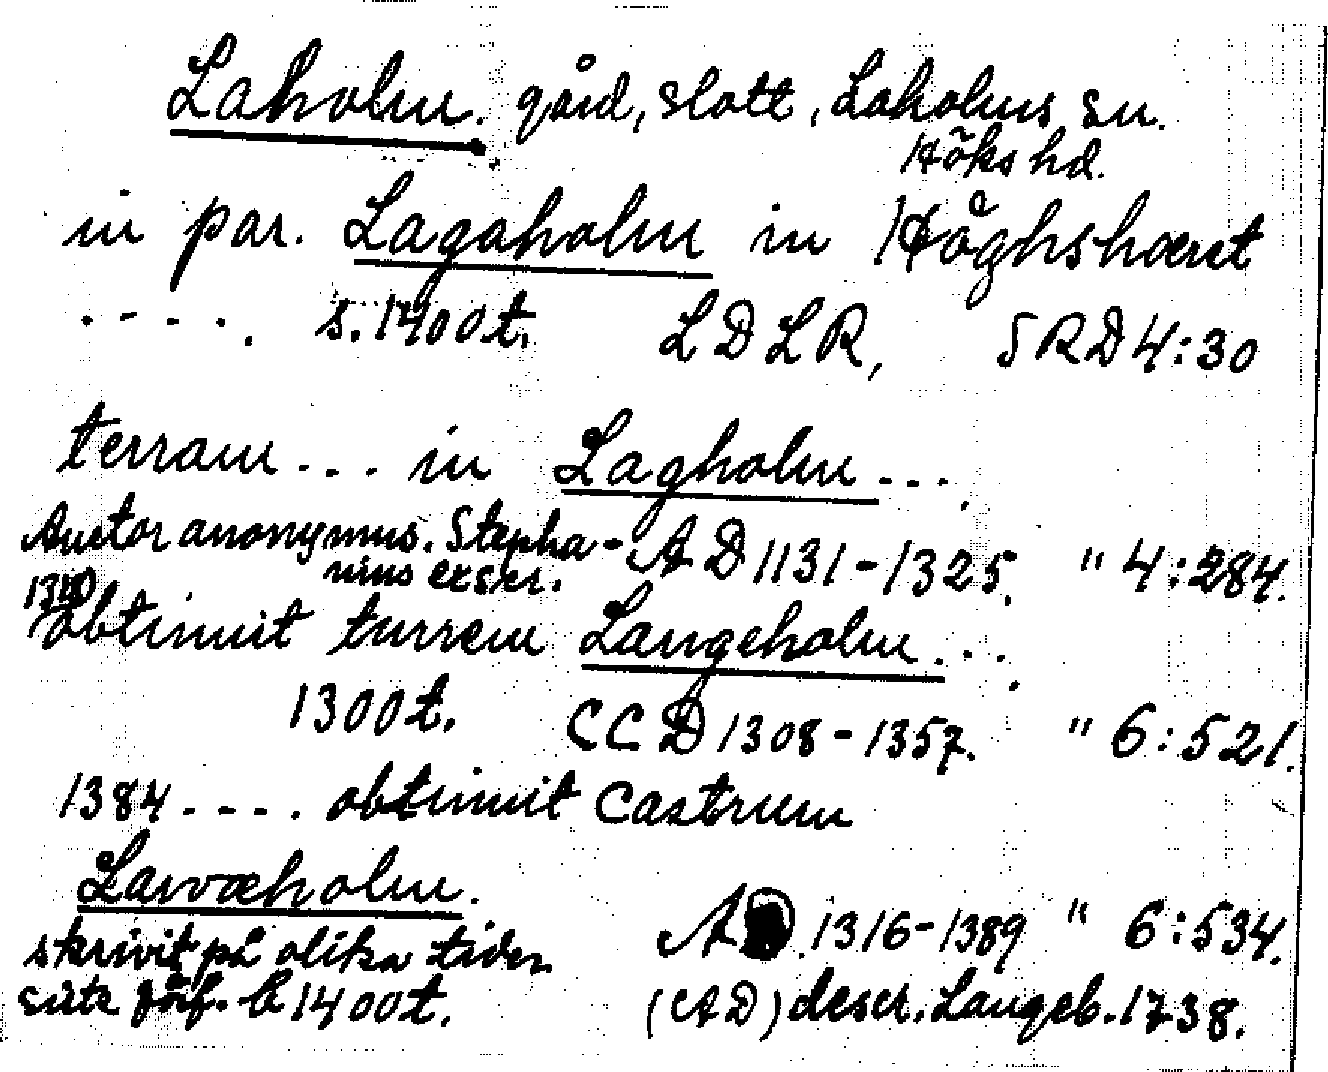 Laholm. gård, slott, Laholms sn.
Höks hd.
in par. Lagaholm in Høghshæret
. - - - . s. 1400t. LDLR, SRD 4:30
terram ... in Lagholm ....
Auctor anonymus. Stepha-
nius exscr. AD 1131-1325. " 4:284.
1310
obtinuit turrem Langeholm....
1300t. CCD 1308-1357. " 6:521.
1384 .... obtinuit Castrum
Lawæholm. AD 1316-1389 " 6:534.
skrivit på olika tider
siste förf. b. 1400t. (AD) descr. Langeb. 1738.